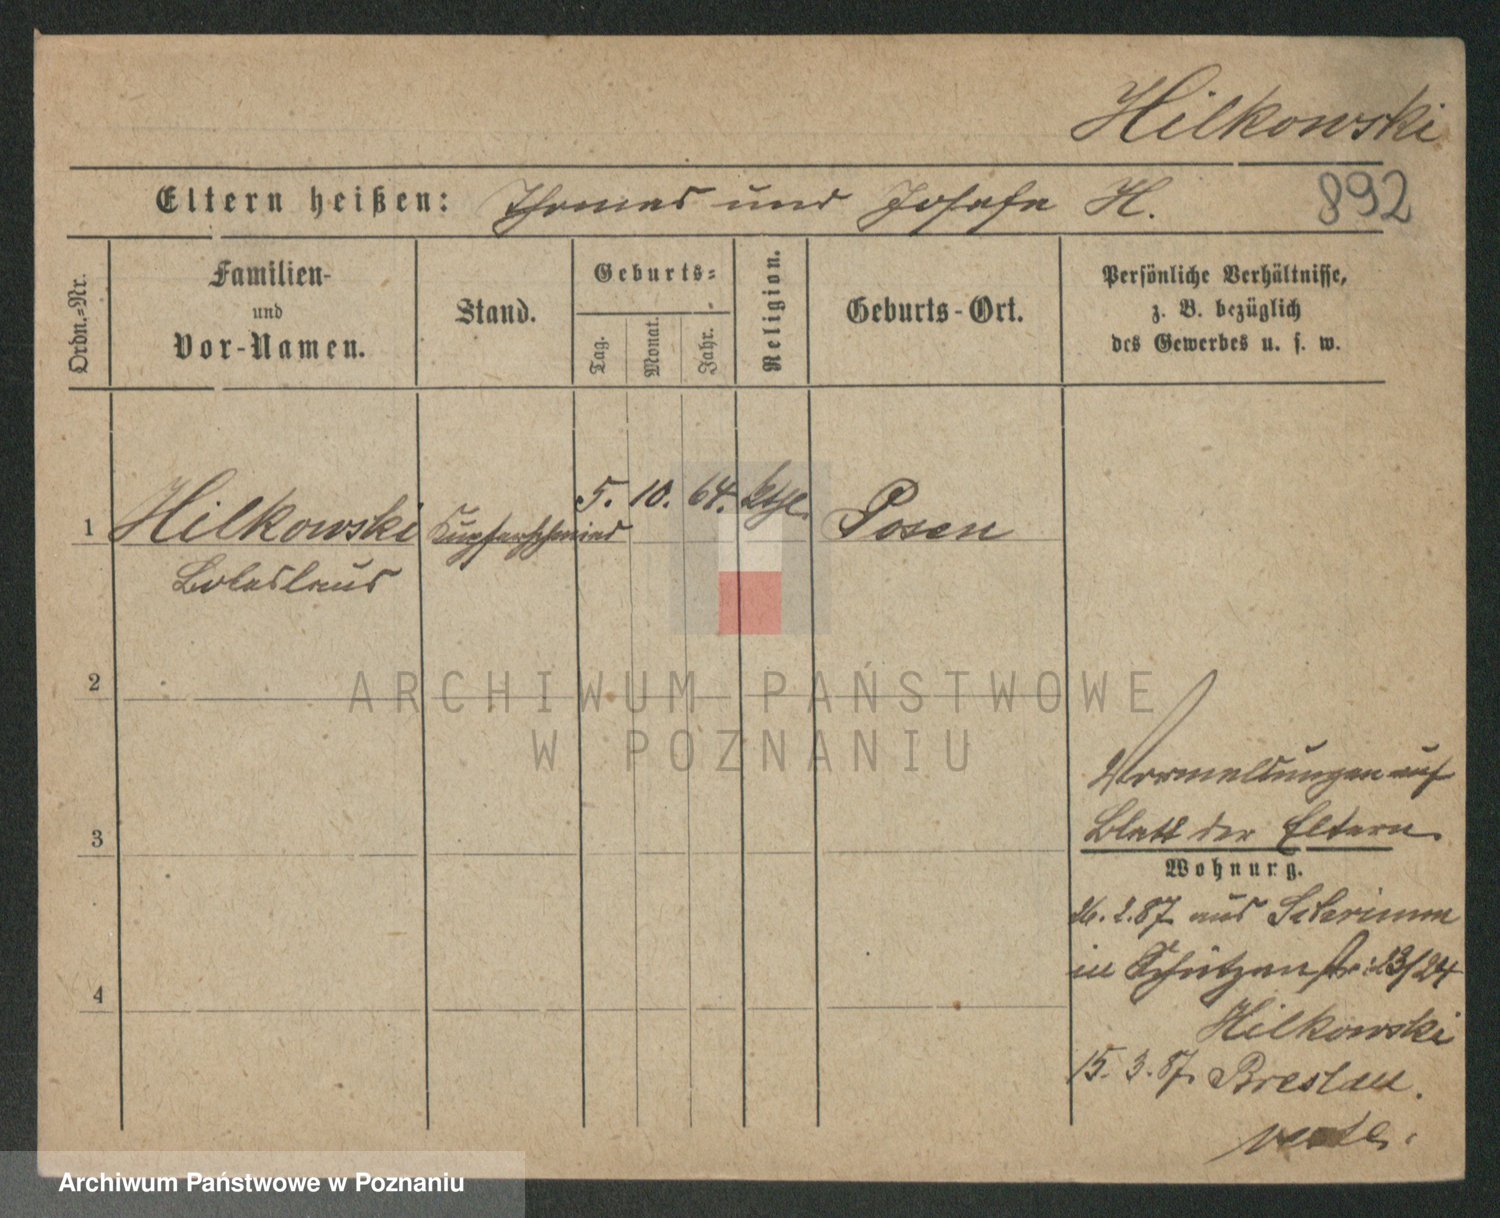 Hilkowski
Eltern heißen: Thomas und Josefa H.
892
Ordn.-Nr.
Familien-
und
Vor-Namen.
Stand.
Geburts-
Tag.
Monat.
Jahr.
Religion.
Geburts-Ort.
Persönliche Verhältnisse,
z. B. bezüglich
des Gewerbes u. s. w.
1 Hilkowski Kupferschmied 5. 10. 64. kthl. Posen
Boleslaus
2
ARCHIWUM PAŃSTWOWE
W POZNANIU
Vormeldungen auf
3 Blatt der Eltern.
Wohnung.
26. 2. 87 aus
in Schützenstr. 23/24
4
Hilkowski
15. 3. 87. Breslau.
Archiwum Państwowe w Poznaniu